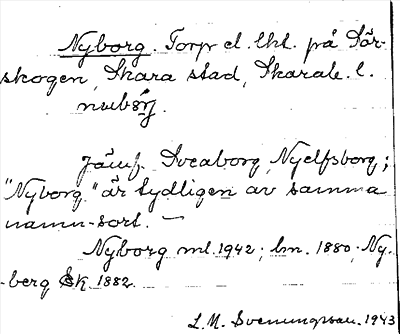 Nyborg. Torp el. lht. på Sär-
skogen, Skara stad, Skarab. l.
Jämf. Sveaborg, Nyelfsborg;
"Nyborg" är tydligen av samma
namn-sort. —
Nyborg ml. 1942; bn. 1880; Ny-
-berg Sk 1882.
L. M. Svenungsson. 1943